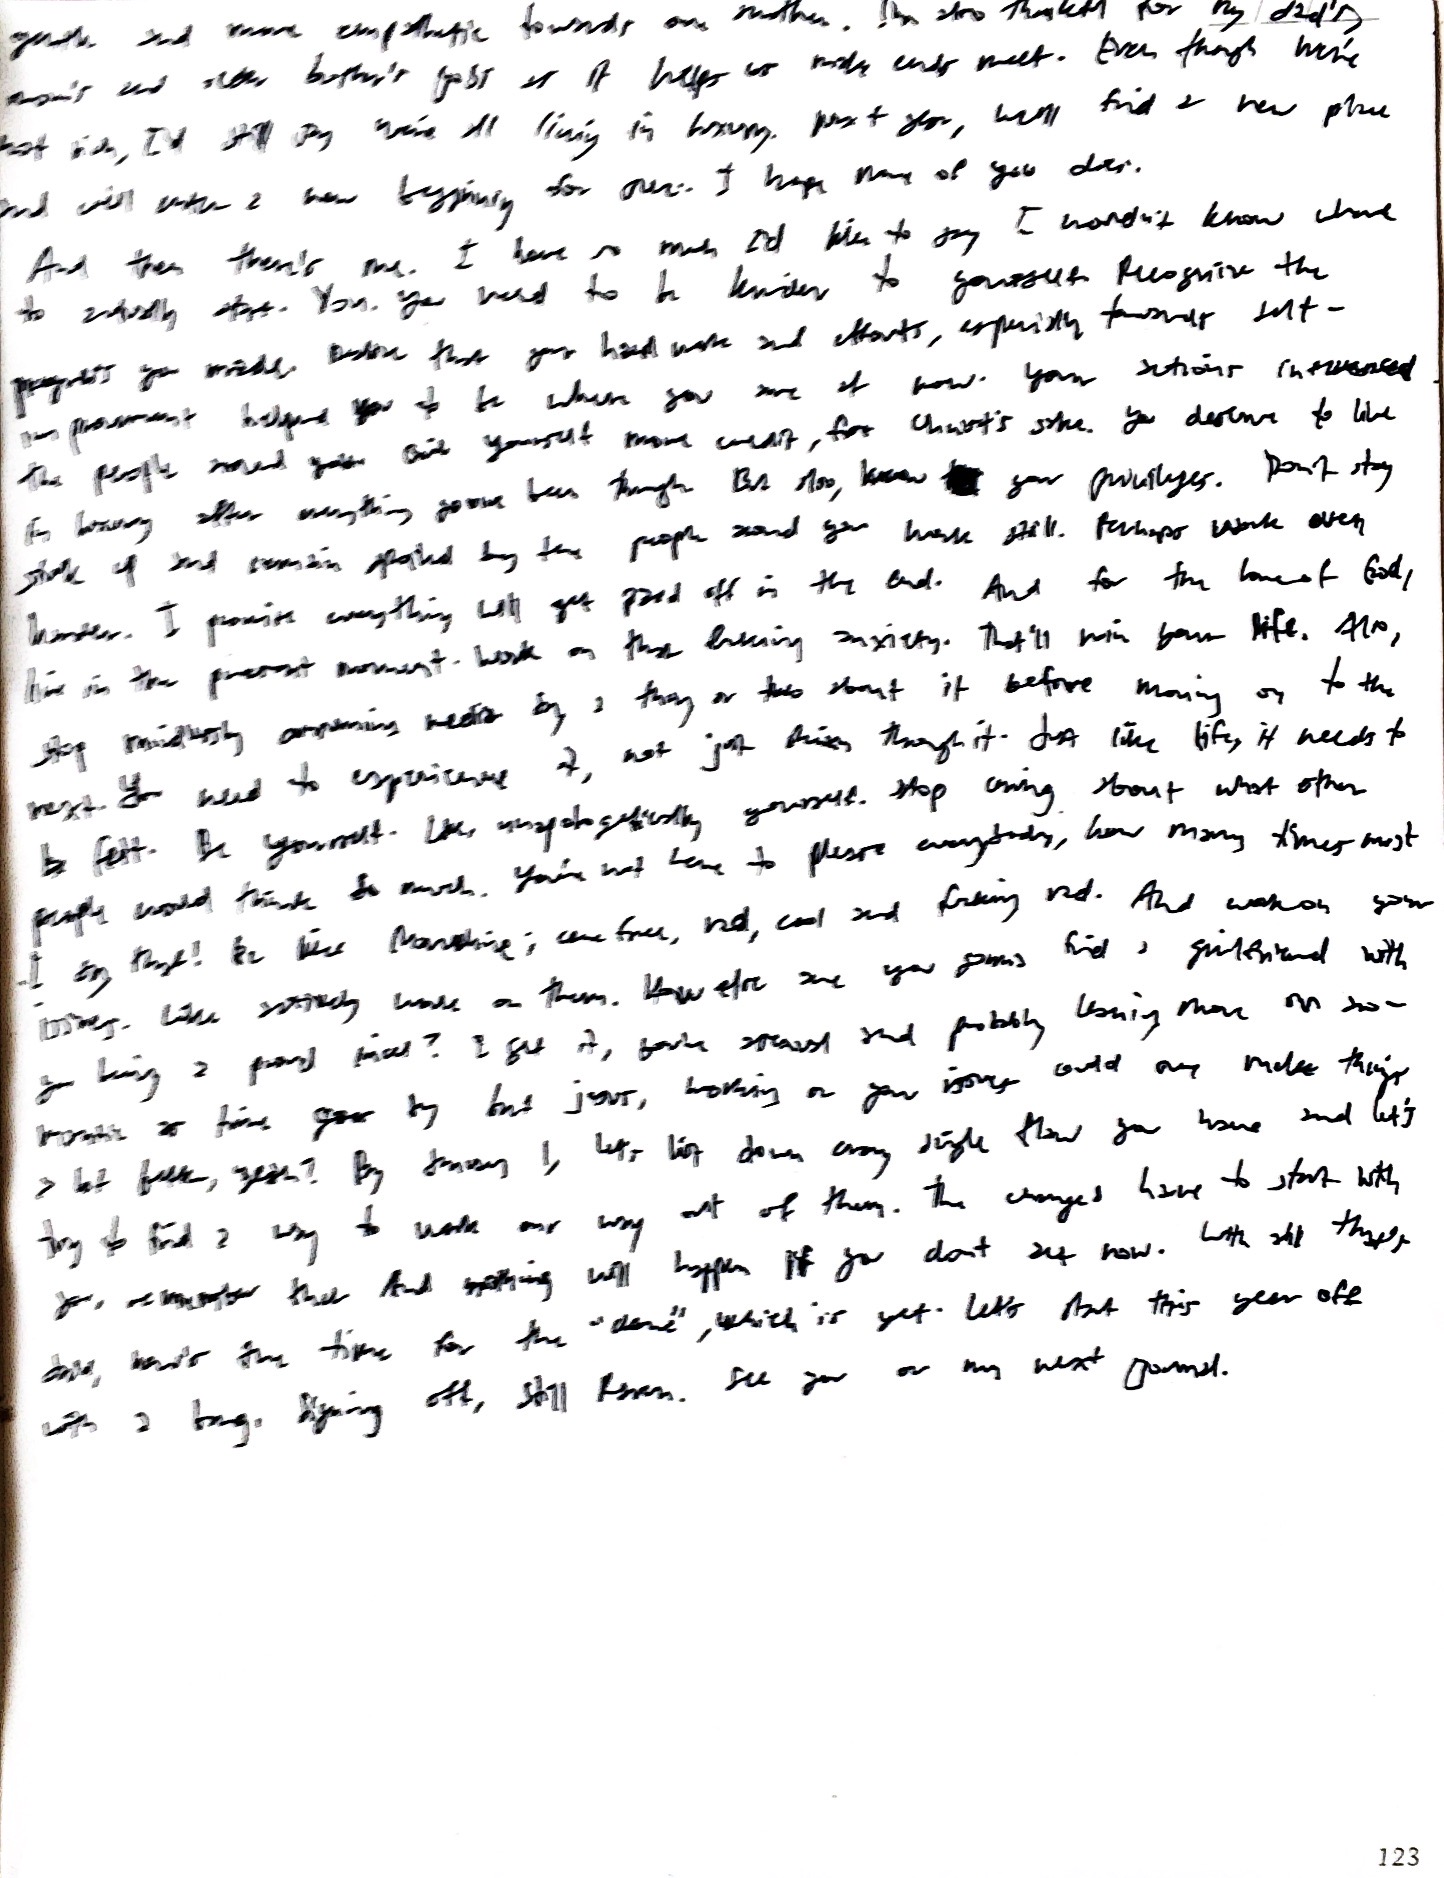 gentle and more empathetic towards one another. I'm also thankful for my dad's,
mom's and older brother's jobs as it helps us make ends meet. Even though we're
not rich, I'd still say we're all living in luxury. Next year, we'll find a new place
and will enter a new beginning for ours. I hope none of you dies.
And then there's me. I have so much I'd like to say I wouldn't know where
to actually start. You. You need to be kinder to yourself. Recognize the
progress you made. Realize that your hard work and efforts, especially towards self-
improvement helped you to be where you are at now. Your actions influenced
the people around you. Give yourself more credit, for Christ's sake. You deserve to live
in luxury after everything you've been through. But also, know your privileges. Don't stay
still and remain spoiled by the people around you work still. Perhaps work even
harder. I promise everything will get paid off in the end. And for the love of God,
live in the present moment. Work on that fucking anxiety. That'll ruin your life. Also,
stop mindlessly consuming media. Say a thing or two about it before moving on to the
next. You need to experience it, not just through it. Just like life, it needs to
be felt. Be yourself. Like, unapologetically yourself. Stop caring about what other
people would think so much. You're not here to please everybody, how many times must
I say that! Be like Marceline; carefree, rad, cool and fucking rad. And work on your
issues. Like actively work on them. How else are you gonna find a girlfriend with
you being a proud ? I get it, you're and probably leaning more on aro-
mantic as time goes by but jesus, working on your issues could make things
a lot better, yeah? By January 1, let's list down every single flaw you have and let's
try to find a way to work our way out of them. The changes have to start with
you, remember that. And nothing will happen if you don't act now. With all that's
said, here's the time for the "done", which is yet. Let's start this year off
with a bang. Signing off, still . See you on my next journal.
123